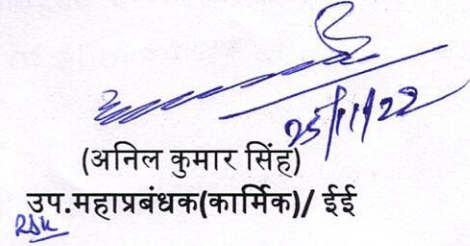 25/11/22
(अनिल कुमार सिंह)
उप.महाप्रबंधक(कार्मिक)/ ईई